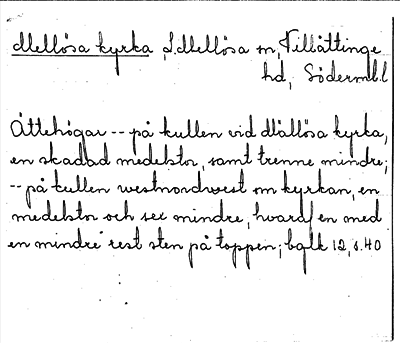 Mellösa kyrka, S. Mellösa sn, Villåttinge
hd, Söderml. l
Ättehögar -- på kullen vid Mällösa kyrka,
en skadad medelstor, samt trenne mindre;
-- på kullen westnordwest om kyrkan, en
medelstor och sex mindre, hvaraf en med
en mindre rest sten på toppen; bqlk 12, s. 40